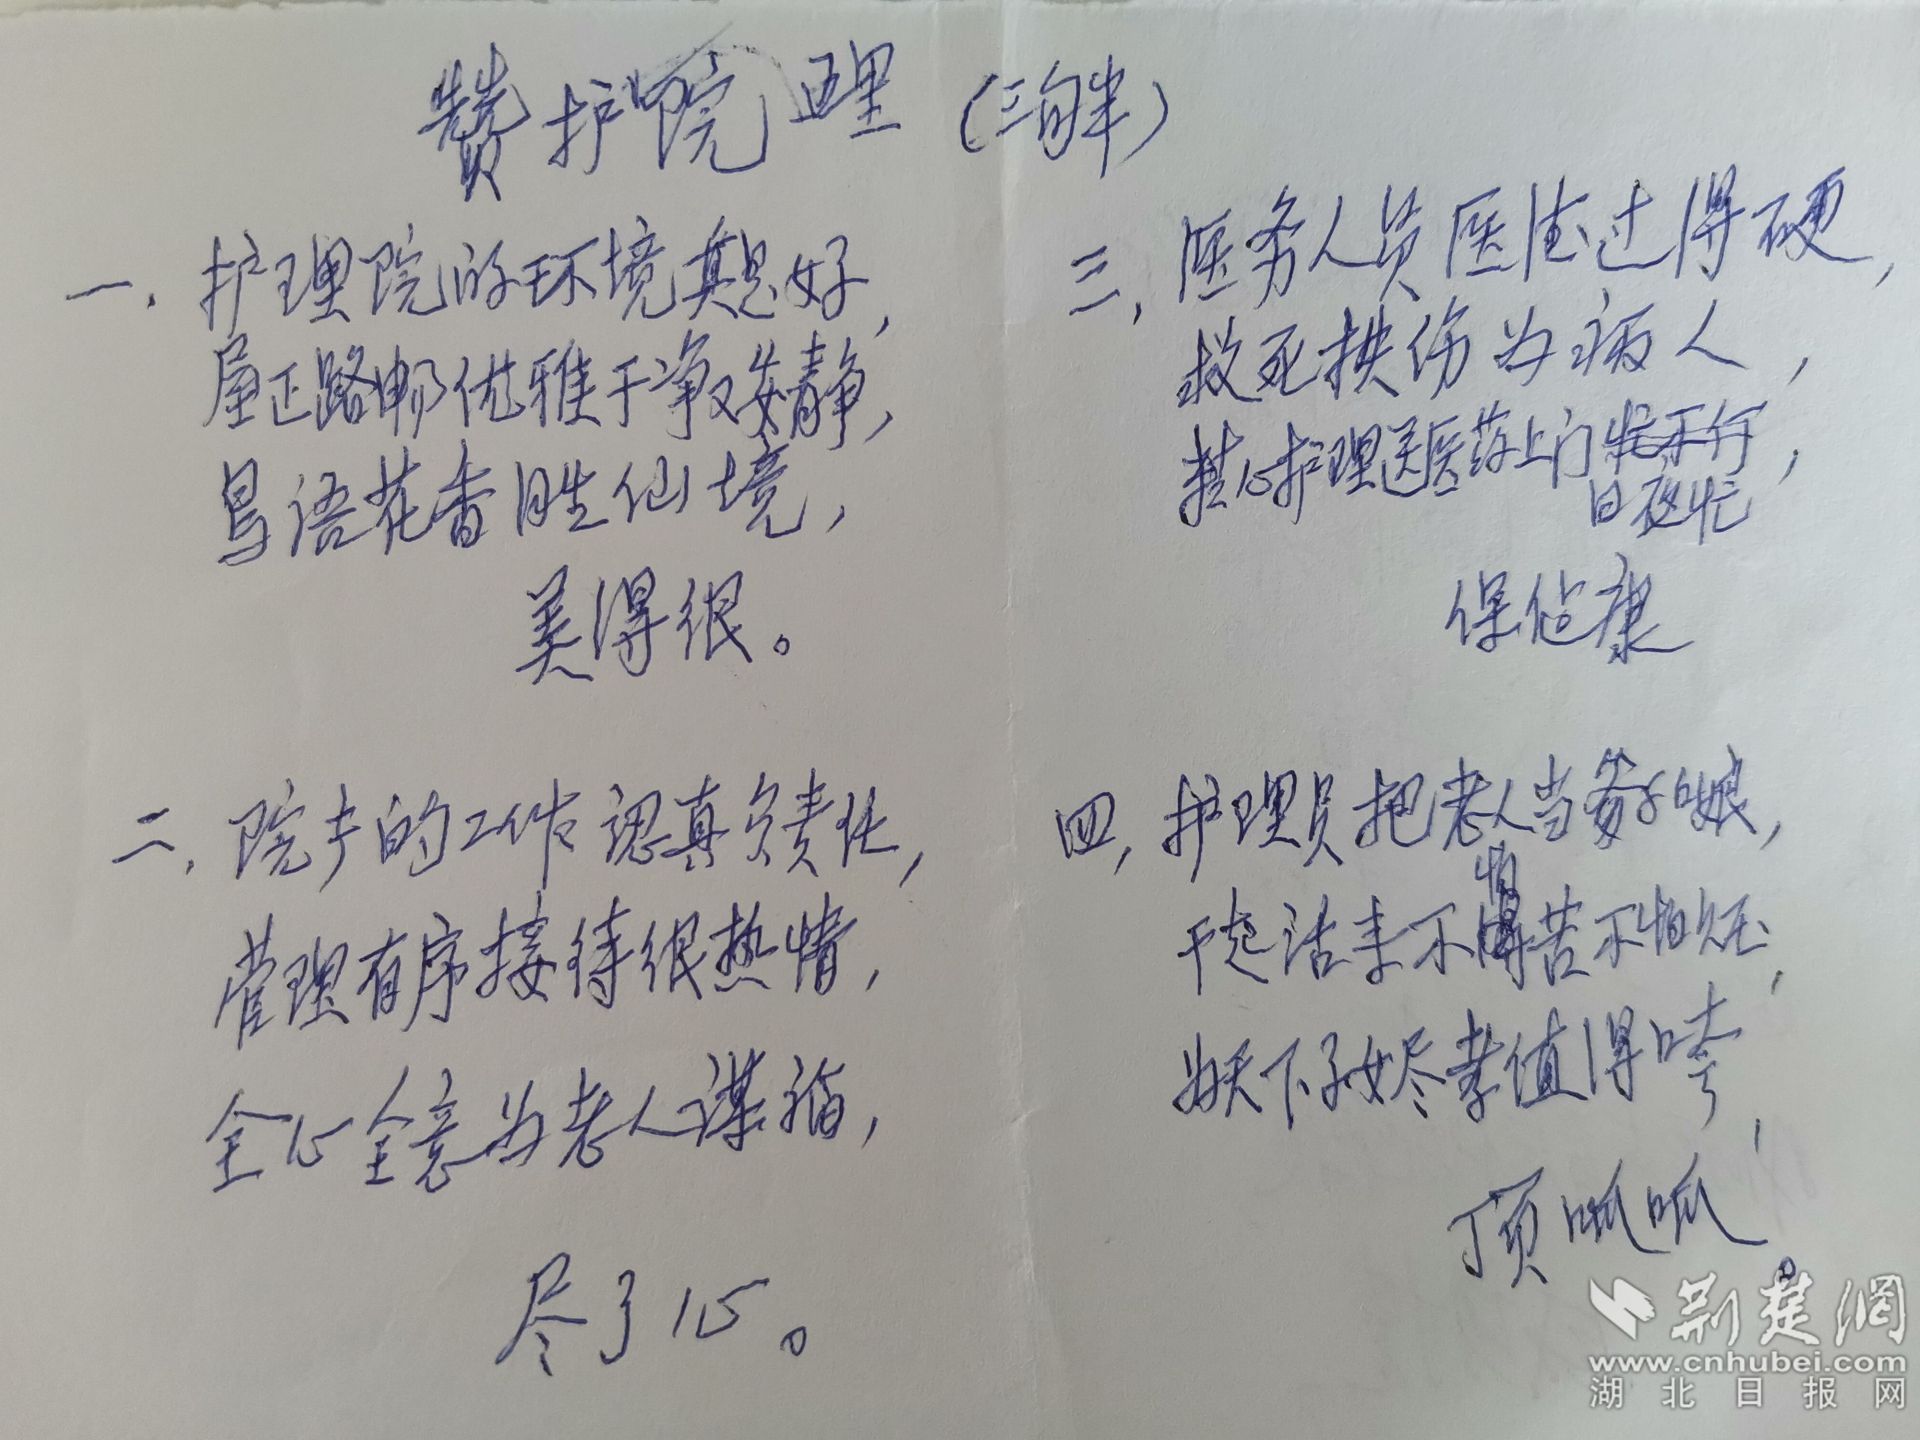 赞护院理（三句半）
一、护理院的环境真是好，
屋正路邮优雅干净又安静，
鸟语花香胜仙境，
美得很。
二、院产的工作认真负责任，
管理有序接待很热情，
全心全意为老人谋福，
尽了心。
三、医务人员医德过得硬，
救死扶伤为病人，
精心护理送医药上门
日夜忙，
保健康
四、护理员把老人当爹娘，
怕
干起活来不苦不怕
为天下子女尽孝值得夸，
顶呱呱。
荆楚网
www.cnhubei.com
湖北日报网